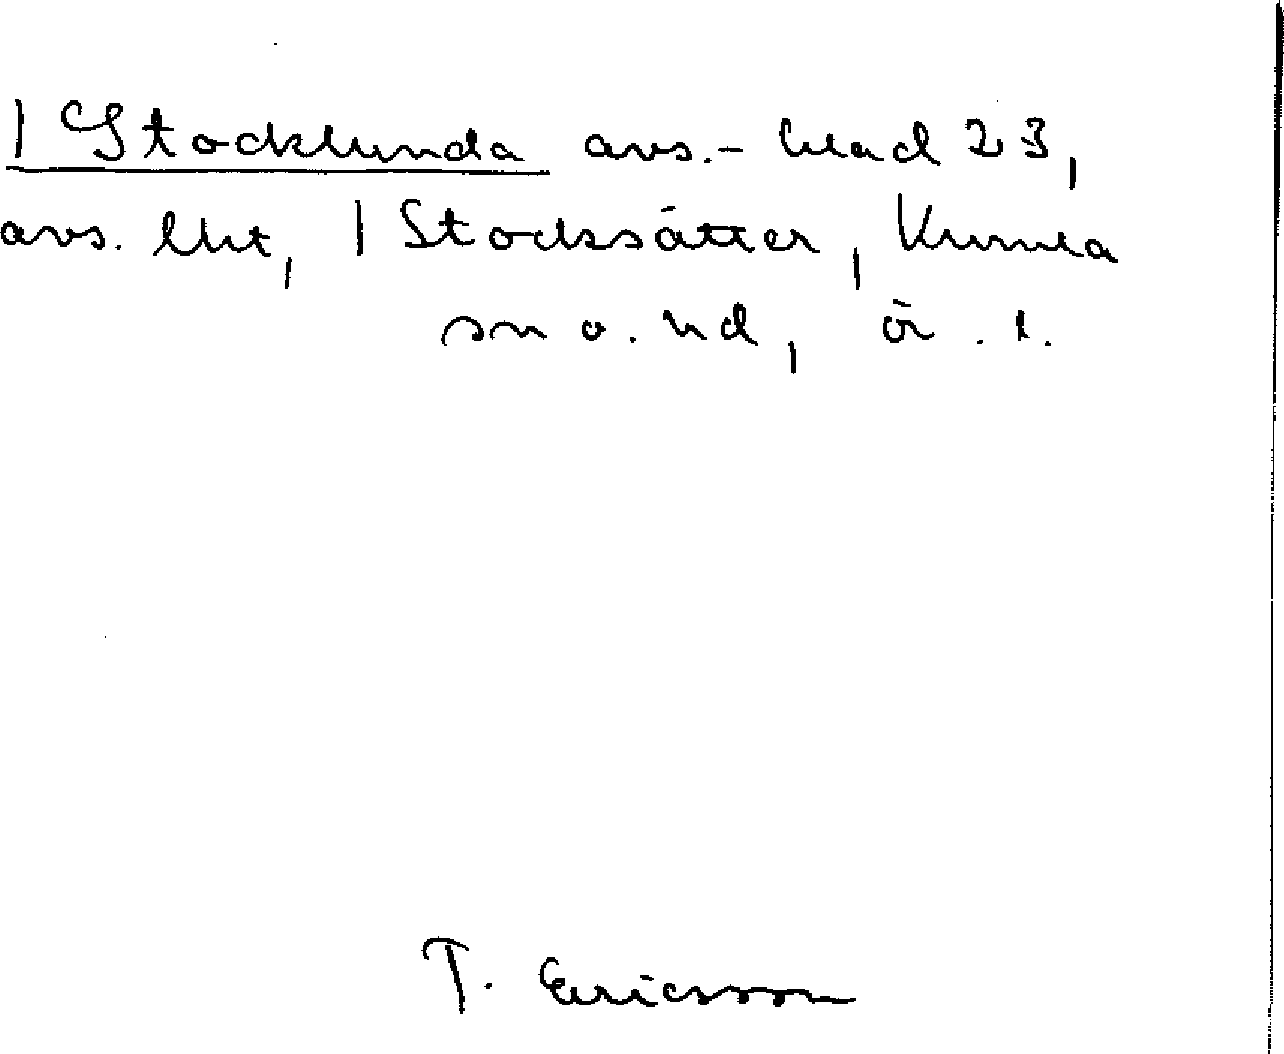 | Stocklunda avs. - blad 23,
avs. lht, | Stocksätter, Kumla
sn o. hd, ör. l.
T. Ericsson